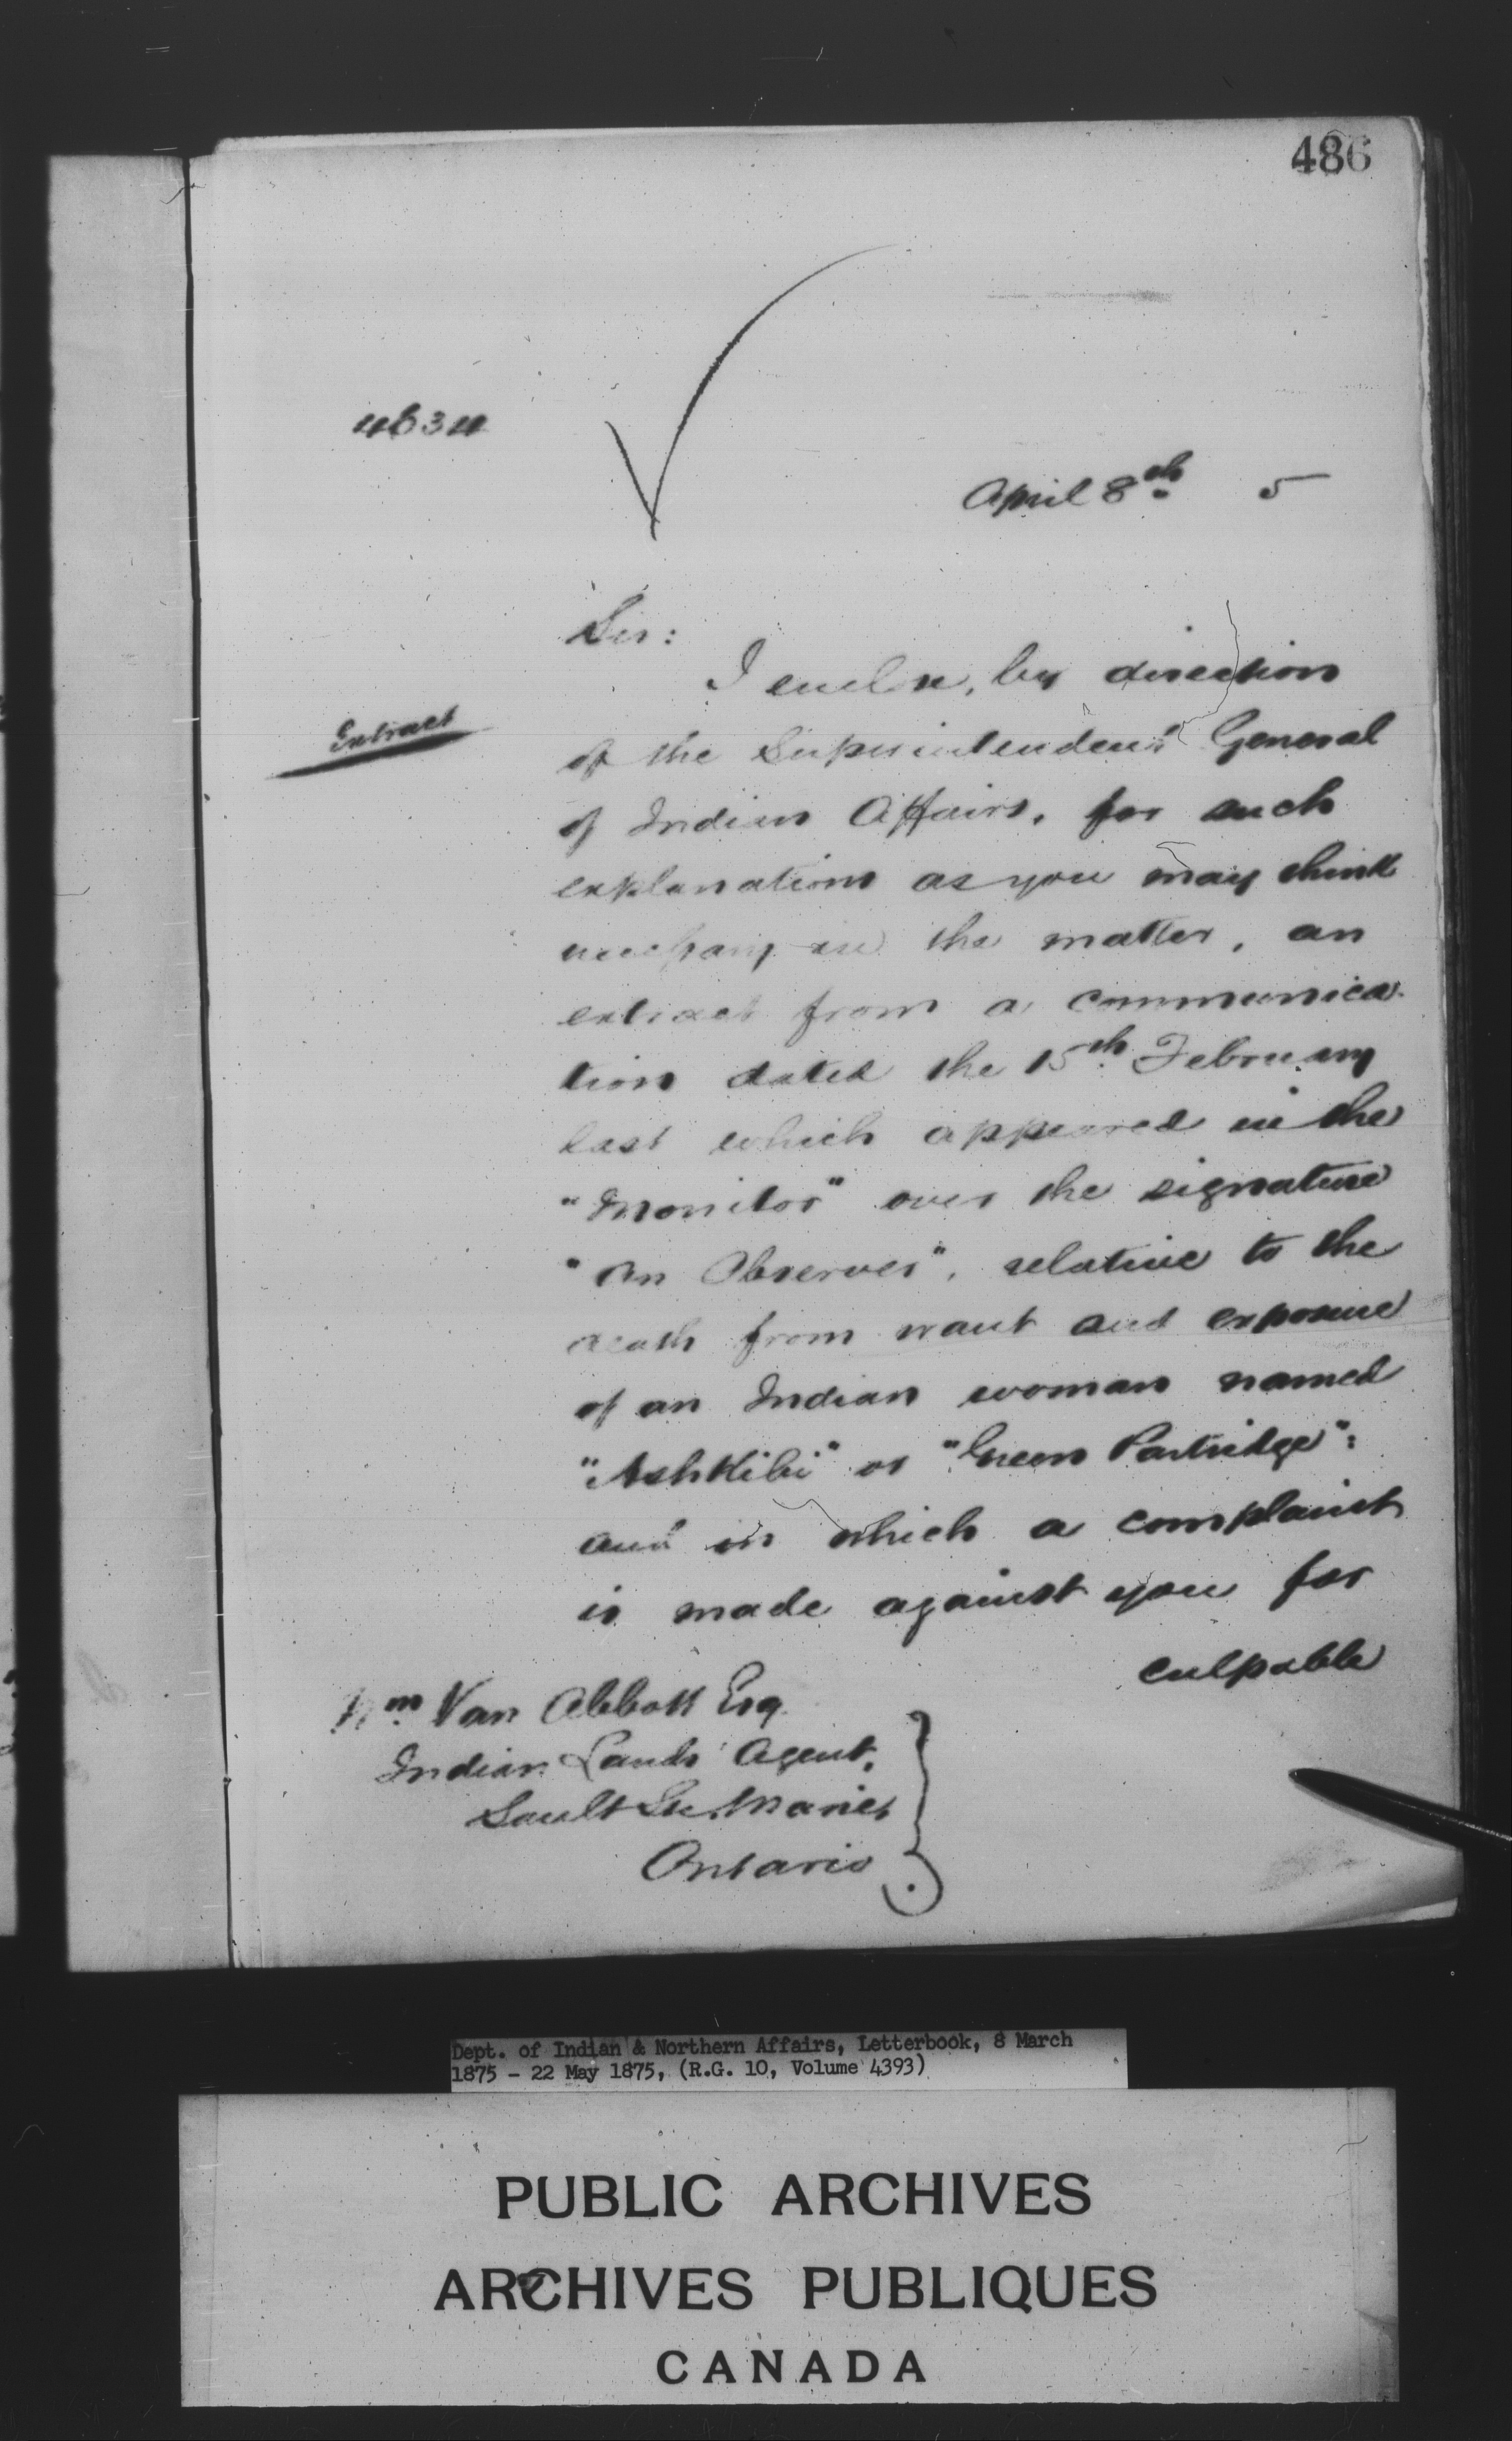 486
4634
April 8th 5
Sir:
I enclose, by direction
Extract
of the Superintendent General
of Indian Affairs, for such
explanations as you may think
necessary in the matter, an
extract from a communica-
tion dated the 15th February
last which appeared in the
"Monitor" over the signature
"An Observer", relative to the
death from want and exposure
of an Indian woman named
"Ashkibi" or "Green Partridge":
and in which a complaint
is made against you for
culpable
Wm. Van Abbott Esq.
Indian Lands Agent,
Sault Ste. Marie,
Ontario
Dept. of Indian & Northern Affairs, Letterbook, 8 March
1875 - 22 May 1875, (R.G. 10, Volume 4393)
PUBLIC ARCHIVES
ARCHIVES PUBLIQUES
CANADA